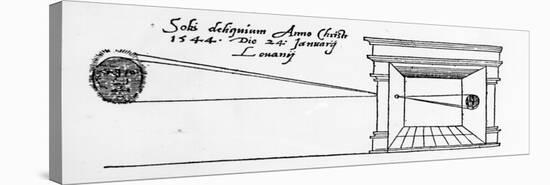 Solis deliquium Anno Christi
1544. Die 24: Januarij
Lovanij